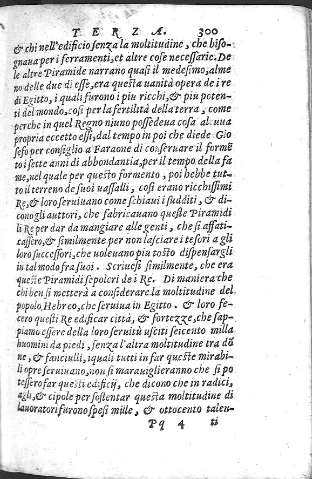 TERZA. 300
& chi nell'edificio senza la moltitudine, che biso-
gnaua per i ferramenti, et altre cose necessarie. De
le altre Piramide narrano quasi il medesimo, alme
no delle due di esse, era questa uanità opera de i re
di Egitto, i quali furono i piu ricchi, & piu poten-
ti del mondo, cosi per la fertilità della terra, come
perche in quel Regno niuno possedeua cosa alcuna
propria eccetto essi, dal tempo in poi che diede Gio
sefo per consiglio a Faraone di conseruare il formē
to i sette anni di abbondantia, per il tempo della fa
me, nel quale per questo formento, poi hebbe tut-
to il terreno de suoi uassalli, cosi erano ricchissimi
Re, & loro seruiuano come schiaui i sudditi, & di-
cono gli auttori, che fabricauano queste Piramidi
li Re per dar da mangiare alle genti, che si affati-
cassero, & similmente per non lasciare i tesori a gli
loro successori, che uoleuano piu tosto dispensargli
in tal modo fra suoi. Scriuesi similmente, che era
queste Piramidi sepolcri de i Re. Di maniera che
chi ben si metterà a considerare la moltitudine del
popolo Hebreo, che seruiua in Egitto. & loro fe-
cero questi Re edificar città, & fortezze, che sap-
piamo essere della loro seruitù usciti seicento milla
huomini da piedi, senza l'altra moltitudine tra dō
ne, & fanciulli, i quali tutti in far queste mirabi-
li opre seruiuano, non si marauiglieranno che si po
tessero far questi edificij, che dicono che in radici,
agli, & cipole per sostentar questa moltitudine di
lauoratori furono spesi mille, & ottocento talen-
Pq 4 ti